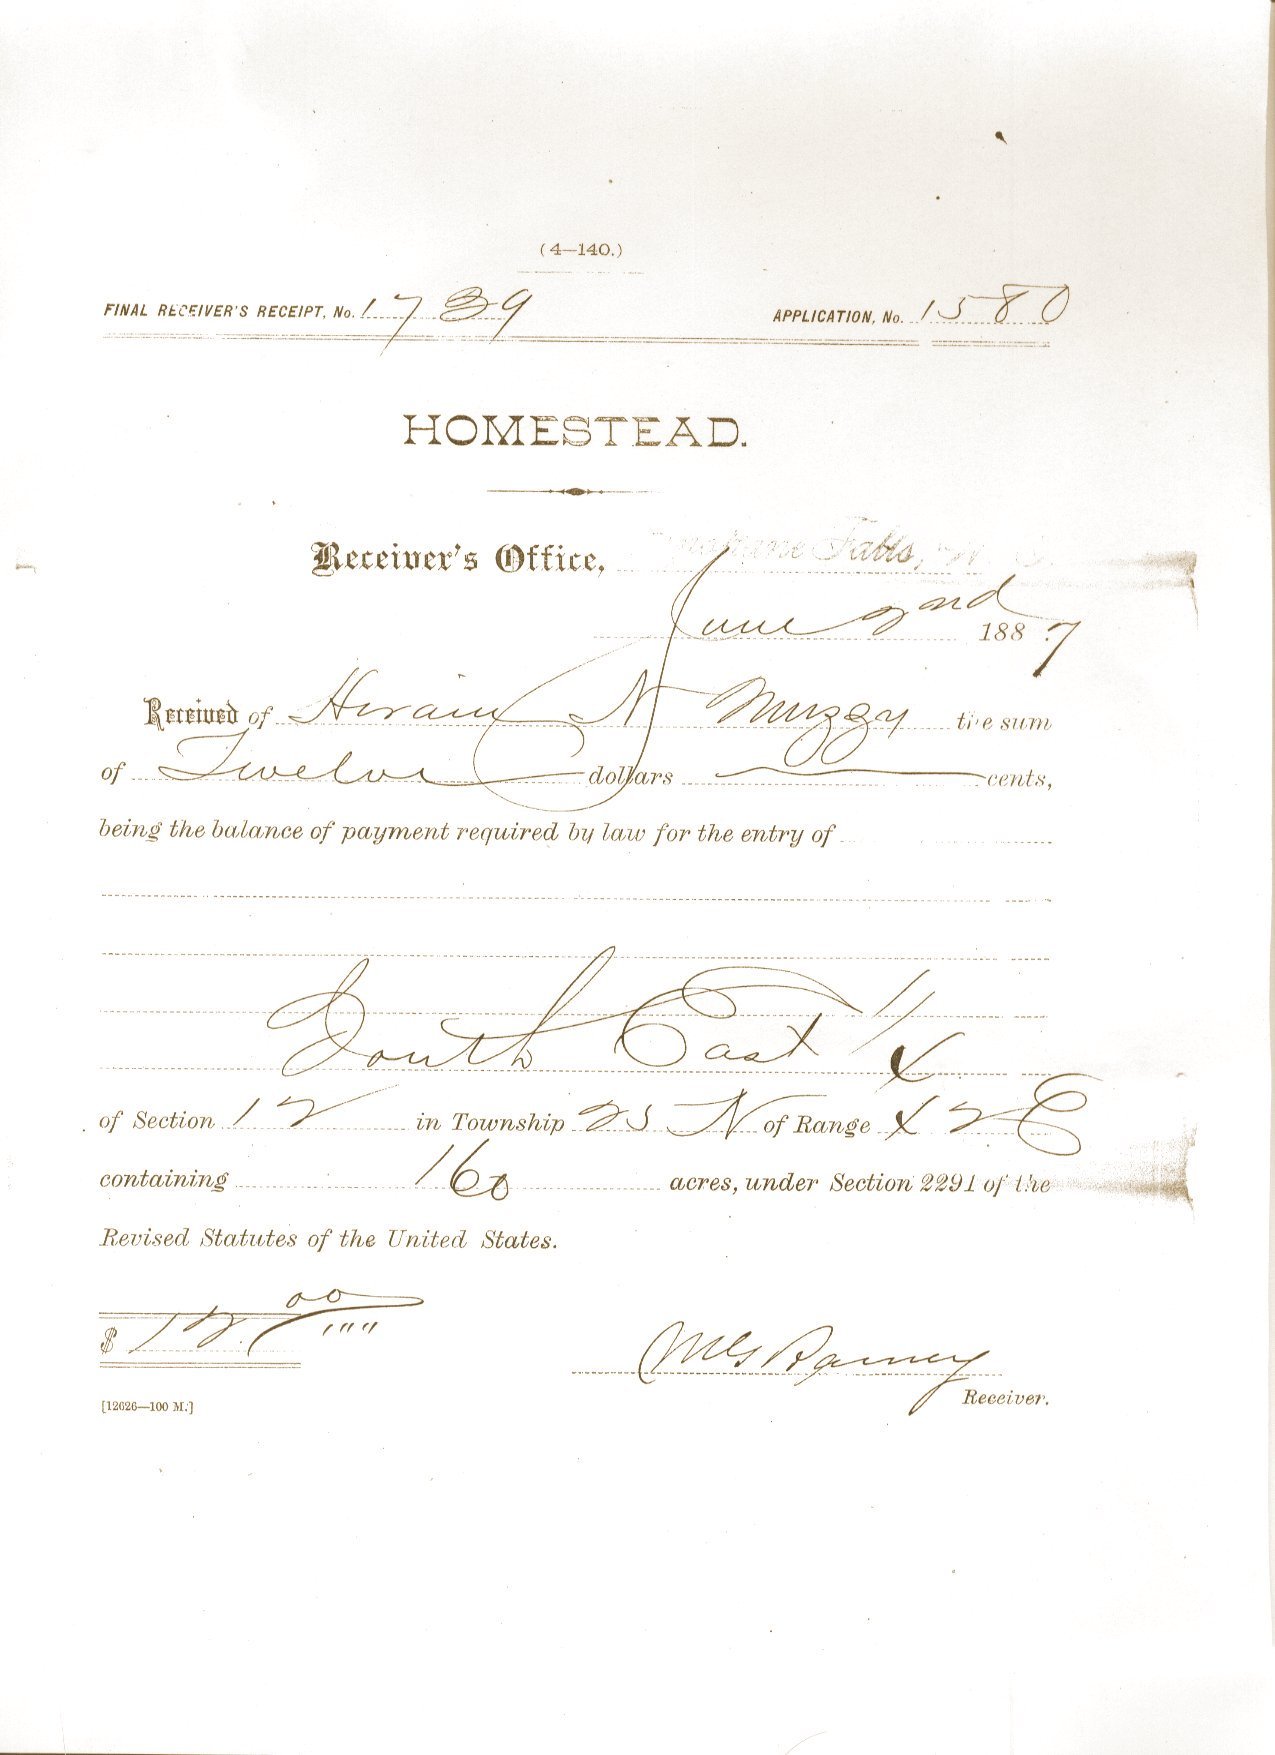 (4—140.)
FINAL RECEIVER'S RECEIPT, No. 1739 APPLICATION, No. 1580
HOMESTEAD.
Receiver's Office, Falls,
June 2nd 1887
Received of Hiram N Muzzy the sum
of Twelve dollars — cents,
being the balance of payment required by law for the entry of
South East 1/4
of Section 12 in Township 25 N of Range 42 E
containing 160 acres, under Section 2291 of the
Revised Statutes of the United States.
$ 12.00
Receiver.
[12626—100 M.]